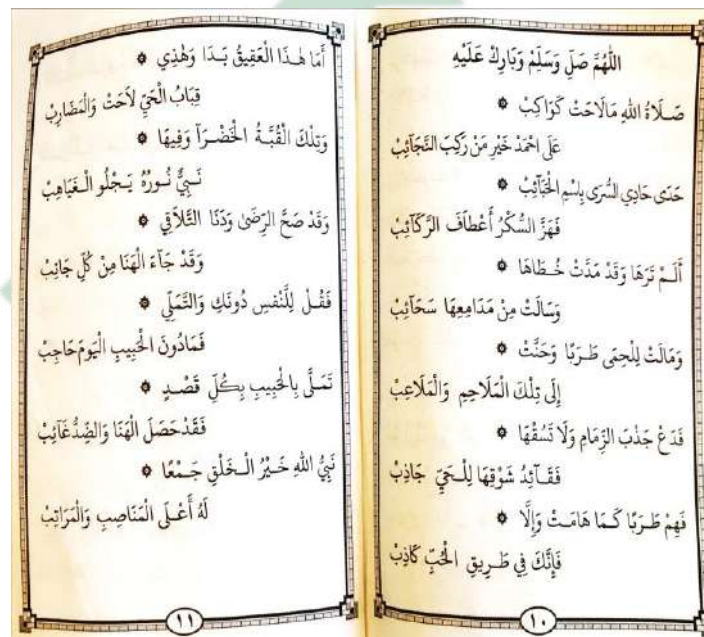 اللّٰهُمَّ صَلِّ وَسَلِّمْ وَبَارِكْ عَلَيْهِ
صَلَاةُ اللهِ مَالَاحَتْ كَوَاكِبْ ۞
عَلَى احْمَدْ خَيْرِ مَنْ رَكِبَ النَّجَآئِبْ
حَدَى حَادِي السُّرَى بِاسْمِ الْحَبَآئِبْ
فَهَزَّ السُّكْرُ أَعْطَافَ الرَّكَآئِبْ
أَلَمْ تَرَهَا وَقَدْ مَدَّتْ خُطَاهَا ۞
وَسَالَتْ مِنْ مَدَامِعِهَا سَحَآئِبْ
وَمَالَتْ لِلْحِمَى طَرَبًا وَحَنَّتْ ۞
إِلَى تِلْكَ الْمَلَاحِمِ وَالْمَلَاعِبْ
فَدَعْ جَذْبَ الزِّمَامِ وَلَا تَسُقْهَا ۞
فَقَآئِدُ شَوْقِهَا لِلْحَيِّ جَاذِبْ
فَهِمْ طَرَبًا كَمَا هَامَتْ وَإِلَّا ۞
فَإِنَّكَ فِي طَرِيقِ الْحُبِّ كَاذِبْ
١٠
أَمَا هٰذَا الْعَقِيقُ بَدَا وَهٰذِي ۞
قِبَابُ الْحَيِّ لَاحَتْ وَالْمَضَارِبْ
وَتِلْكَ الْقُبَّةُ الْخَضْرَآ وَفِيهَا ۞
نَبِيٌّ نُورُهُ يَجْلُو الْغَيَاهِبْ
وَقَدْ صَحَّ الرِّضَىٰ وَدَنَا التَّلَاقِي ۞
وَقَدْ جَآءَ الْهَنَا مِنْ كُلِّ جَانِبْ
فَقُلْ لِلنَّفْسِ دُونَكِ وَالتَّمَلِّي ۞
فَمَادُونَ الْحَبِيبِ الْيَوْمَ حَاجِبْ
تَمَلَّى بِالْحَبِيبِ بِكُلِّ قَصْدٍ ۞
فَقَدْ حَصَلَ الْهَنَا وَالضِّدُّ غَآئِبْ
نَبِيُّ اللهِ خَيْرُ الْخَلْقِ جَمْعًا ۞
لَهُ أَعْلَى الْمَنَاصِبِ وَالْمَرَاتِبْ
١١